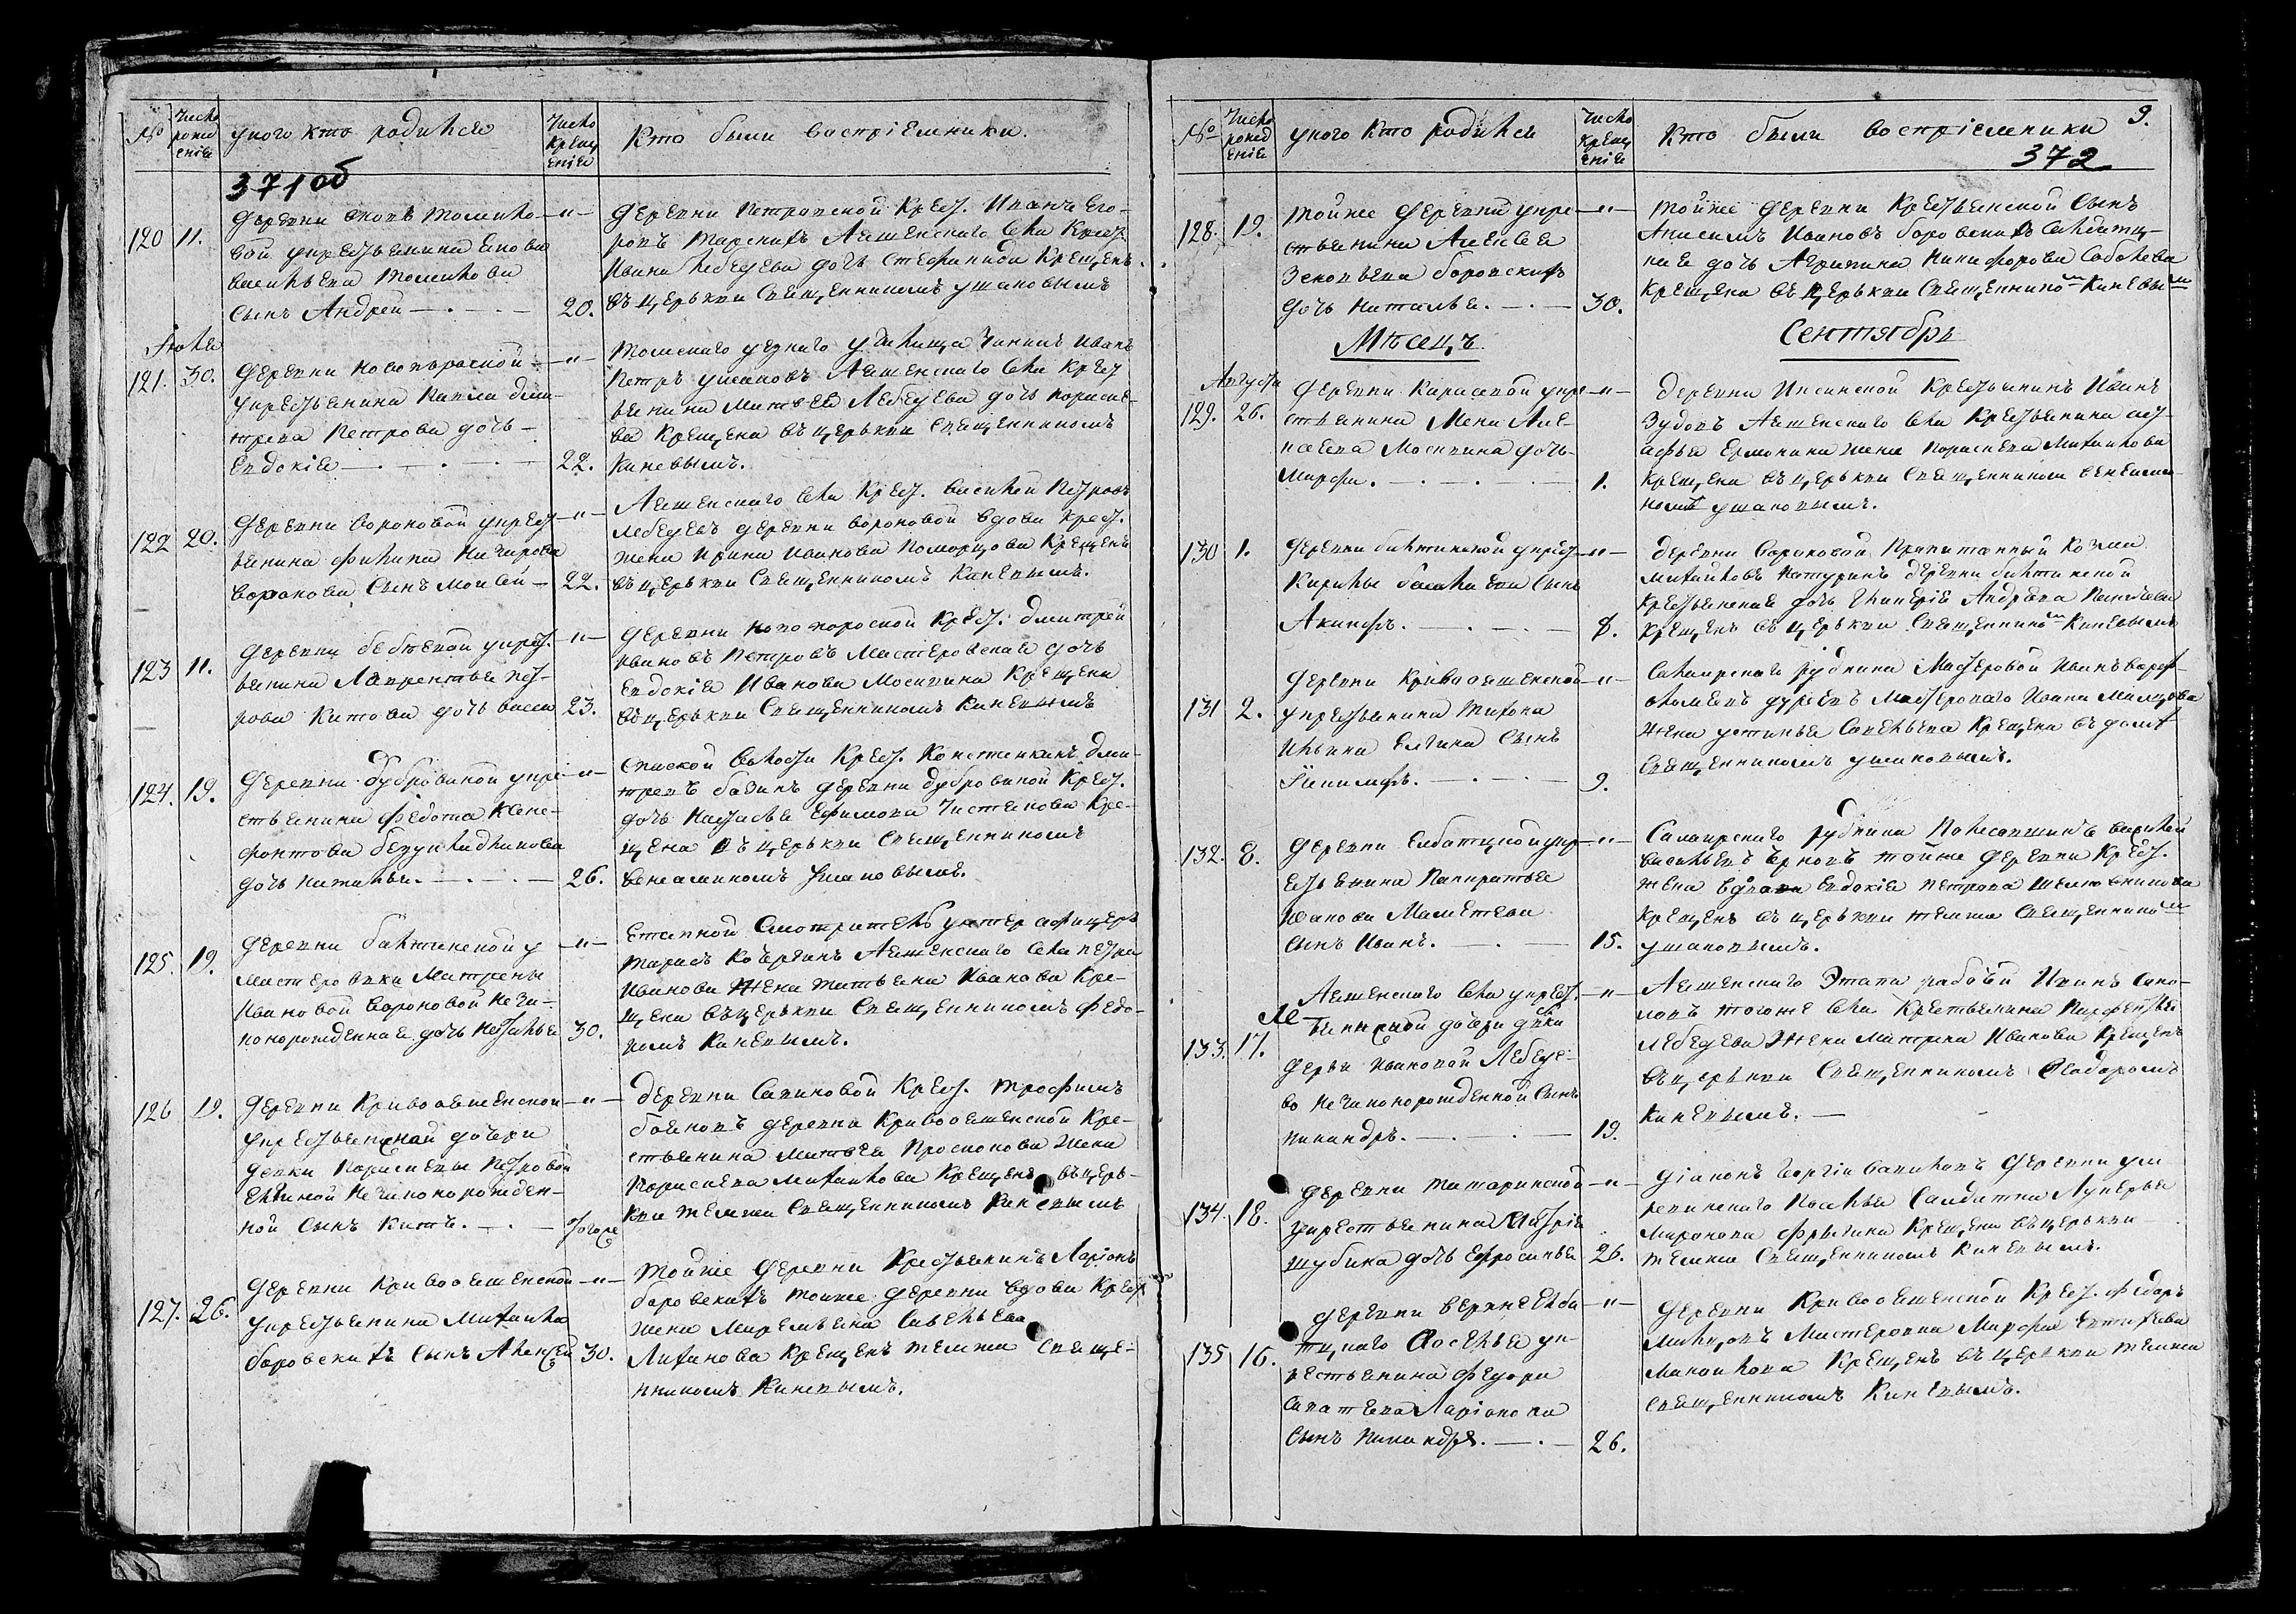 №
Число рождения
у кого кто родился
Число крещения
Кто были восприемники.
371 об
120
11.
деревни
вой у крестьянина
Васильева Томилова
сынъ Андрей
20.
деревни Петровской Крест. Иванъ Его-
ровъ Ояшенскаго села Крест.
Ивана Лебедева дочь Стефанида Крещенъ
въ церькви Священникомъ Ушаковымъ
Июля
121.
30.
деревни Новопороской
у крестьянина Павла Дми-
трева Петрова дочь
Евдокія
22.
Томскаго уезнаго училища Иванъ
Петръ Ушаковъ Ояшенскаго села Крест
янина Матвея Лебедева дочь Параске-
ва Крещена въ церькви Священникомъ
Каневымъ.
122
20.
деревни Вороновой у крест
янина Филипа Назарова
Воронова сынъ Моисей
22.
Ояшенскаго села Крест. Василей Петровъ
Лебедевъ деревни Вороновой вдова Крест.
жена Ирина Иванова Поморцова Крещенъ
въ церькви Священникомъ Каневымъ.
123
11.
деревни у крест.
янина Лаврентья Пет-
рова Китова дочь Васса
23.
деревни Новопороской Крест. Дмитрей
Ивановъ Петровъ Мастеровская дочь
Евдокія Иванова Мосигина Крещена
въ церькви Священникомъ Каневымъ
124.
19.
деревни Дубровиной у кре-
стьянина Федота Ксено-
фонтова
дочь Наталья.
26.
Спаской волости Крест. Константинъ Дми-
тревъ Бабинъ деревни Дубровиной Крест.
дочь Наталья Ефимова Чистякова Кре-
щена въ церькви Священникомъ
Вениаминомъ Ушаковымъ.
125.
19.
деревни Балтинской у
мастеровки Матрены
Ивановой Вороновой неза-
коннорожденная дочь Наталья
30.
Етапной Смотритель унтер афицеръ
Тарасъ Ояшенскаго села Петра
Иванова жена Татьяна Иванова Кре-
щена въ церькви Священникомъ Федо-
ромъ Каневымъ.
126
19.
деревни Кривоояшенской
у крестьянской дочери
девки Парасковы Петровой
Елгиной незаконнорожден-
ной сынъ Китъ.
Тогоже
деревни Сапиковой Крест. Трофимъ
Баиновъ деревни Кривоояшенской Кре-
стьянина Матвея Проскокова жена
Параскева Михайлова Крещенъ въ церь-
кви темже Священникомъ Каневымъ
127.
26.
деревни Кривоояшенской
у крестьянина Михаила
Боровскихъ сынъ Алексей
30.
Тойже деревни Крестьянинъ Ларіонъ
Боровскихъ тоиже деревни вдова Крест
жена Маремьяна Савельева
Крещенъ темже Священ-
никомъ Каневымъ.
№
Число рождения
у кого кто родился
Число крещения
Кто были восприемники
9.
372
128.
19.
Тойже деревни у кре-
стьянина Алексея
Зеновьева Боровскихъ
дочь Наталья.
30.
Тойже деревни Крестьянской сынъ
Анисимъ Ивановъ Боровскихъ салдатц-
кая дочь Агрипина Никифорова Соболева
Крещена въ церькви Священникомъ Каневымъ
Мѣсецъ
Сентябрь
Августа
129.
26.
деревни Карасевой у кре-
стьянина
Мосигина дочь
Марфа.
1.
деревни Иксинской Крестьянинъ Иванъ
Зудовъ Ояшенскаго села Крестьянина
Ермолина жена Параскева Михайлова
Крещена въ церькви Священникомъ Вениами-
номъ Ушаковымъ.
130
1.
деревни Балтинской у крест
Кирилы сынъ
Акинфъ.
8.
деревни Вороновой Пропитанный Козма
Михайловъ деревни Балтинской
Крестьянская дочь Андреева
Крещенъ въ церькви Священником Каневымъ
131
2.
деревни Кривоояшенской
у крестьянина Тихона
Ильина Елгина сынъ
9.
Салаирскаго рудника Мастеровой Иванъ Вар-
оломеевъ Мастероваго Ивана
жена Устинья Савельева Крещена въ доме
Священникомъ Ушаковымъ.
132.
8.
деревни Елбатцкой у кр-
естьянина Панкратья
Иванова Маметева
сынъ Иванъ.
15.
Салаирскаго рудника Василей
Васильевъ тойже деревни Крест.
жена вдова Евдокія Петрова
Крещенъ въ церькви темже Священникомъ
Ушаковымъ.
133.
17.
Ояшенскаго села у крест-
янской дочери девки
Дарьи Ивановой Лебеде-
во незаконнорожденной сынъ
Никандръ.
19.
Ояшенскаго Этапа рабочій Иванъ Сано-
ловъ тогоже села Крестьянина Парфентья
Лебедева жена Матрена Иванова Крещенъ
въ церькви Священникомъ Феодоромъ
Каневымъ.
134.
18.
деревни Татаринской
у крестьянина
Шубина дочь Ефросинья
26.
Діаконъ Георгій деревни Ум-
ревинскаго Поселья Салдатка Лукерья
Миронова Крещена въ церькви
темже Священникомъ Каневымъ.
135
16.
деревни Верхне Елба-
тцкаго Поселья у к-
рестьянина Федора
Саватеева Ларіонова
сынъ Никандръ.
26.
деревни Кривоояшенской Крест. Федоръ
Мастеровка Марфа Евтифеева
Манойлова Крещенъ въ церькви темже
Священникомъ Каневымъ.